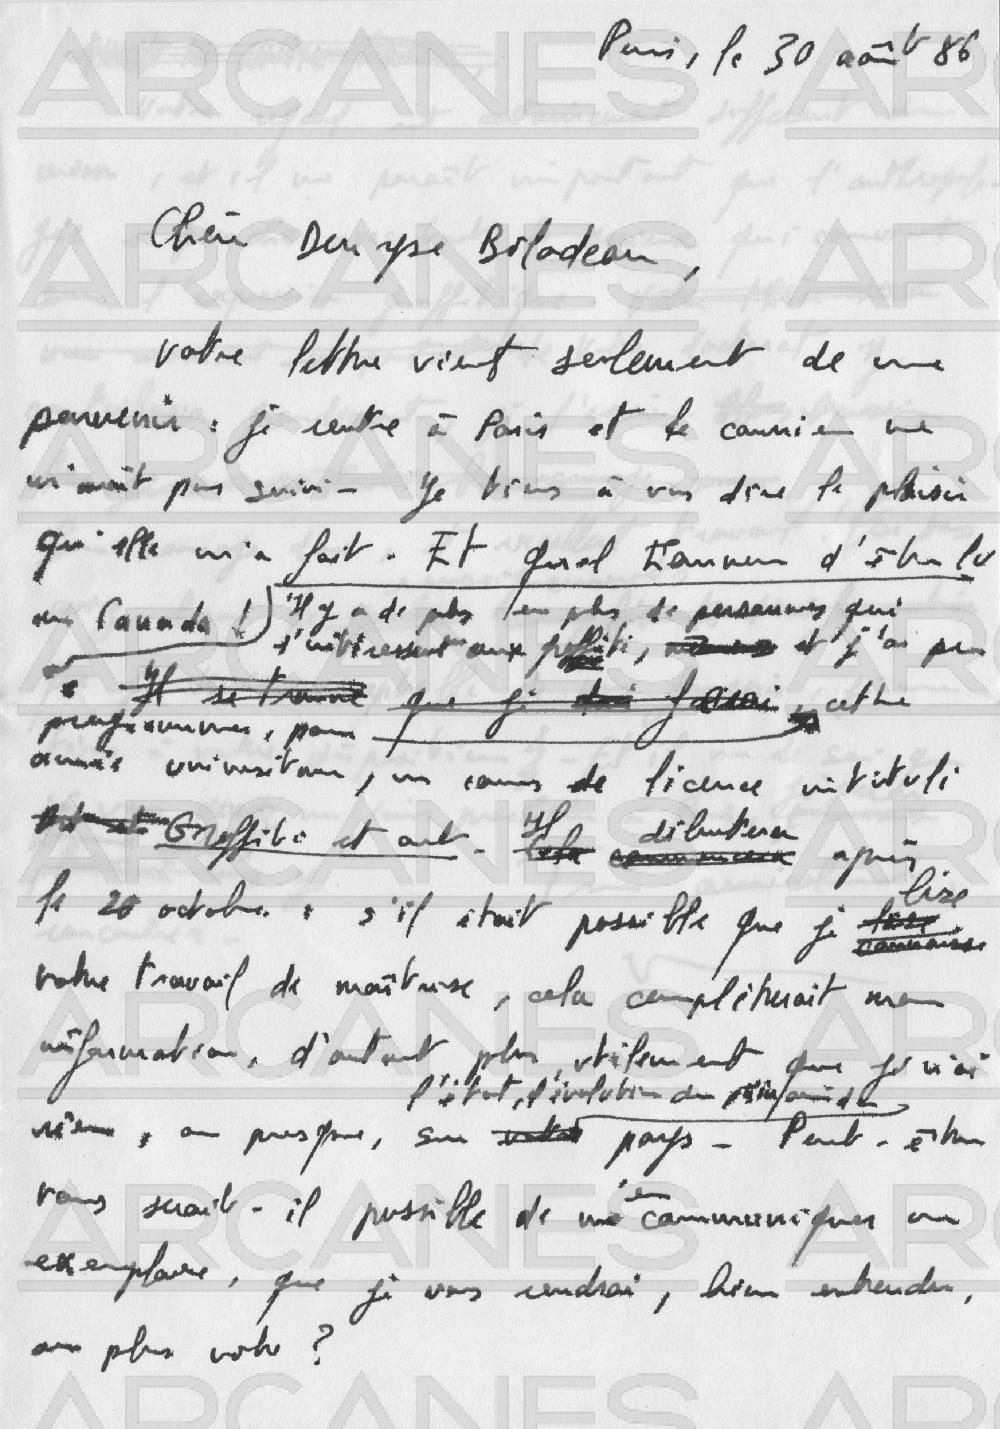 Paris, le 30 août 86
Chère Denyse Bilodeau,
votre lettre vient seulement de me
parvenir : je rentre à Paris et le courrier ne
m'avait pas suivi - Je tiens à vous dire le plaisir
qu'elle m'a fait. Et quel honneur d'être lu
au Canada !
Il y a de plus en plus de personnes qui
s'intéressent aux graffiti, et j'ai pu
Il se trouve que je cette
programmer, pour
année universitaire, un cours de licence intitulé
Graffiti et art - Il débutera après
le 20 octobre : s'il était possible que je lise
votre travail de maîtrise, cela complèterait mon
information, d'autant plus utilement que je n'ai
l'état, l'évolution du
rien, ou presque, sur pays - Peut-être
vous serait-il possible de m'en communiquer un
exemplaire, que je vous rendrai, bien entendu,
au plus vite ?
ARCANES